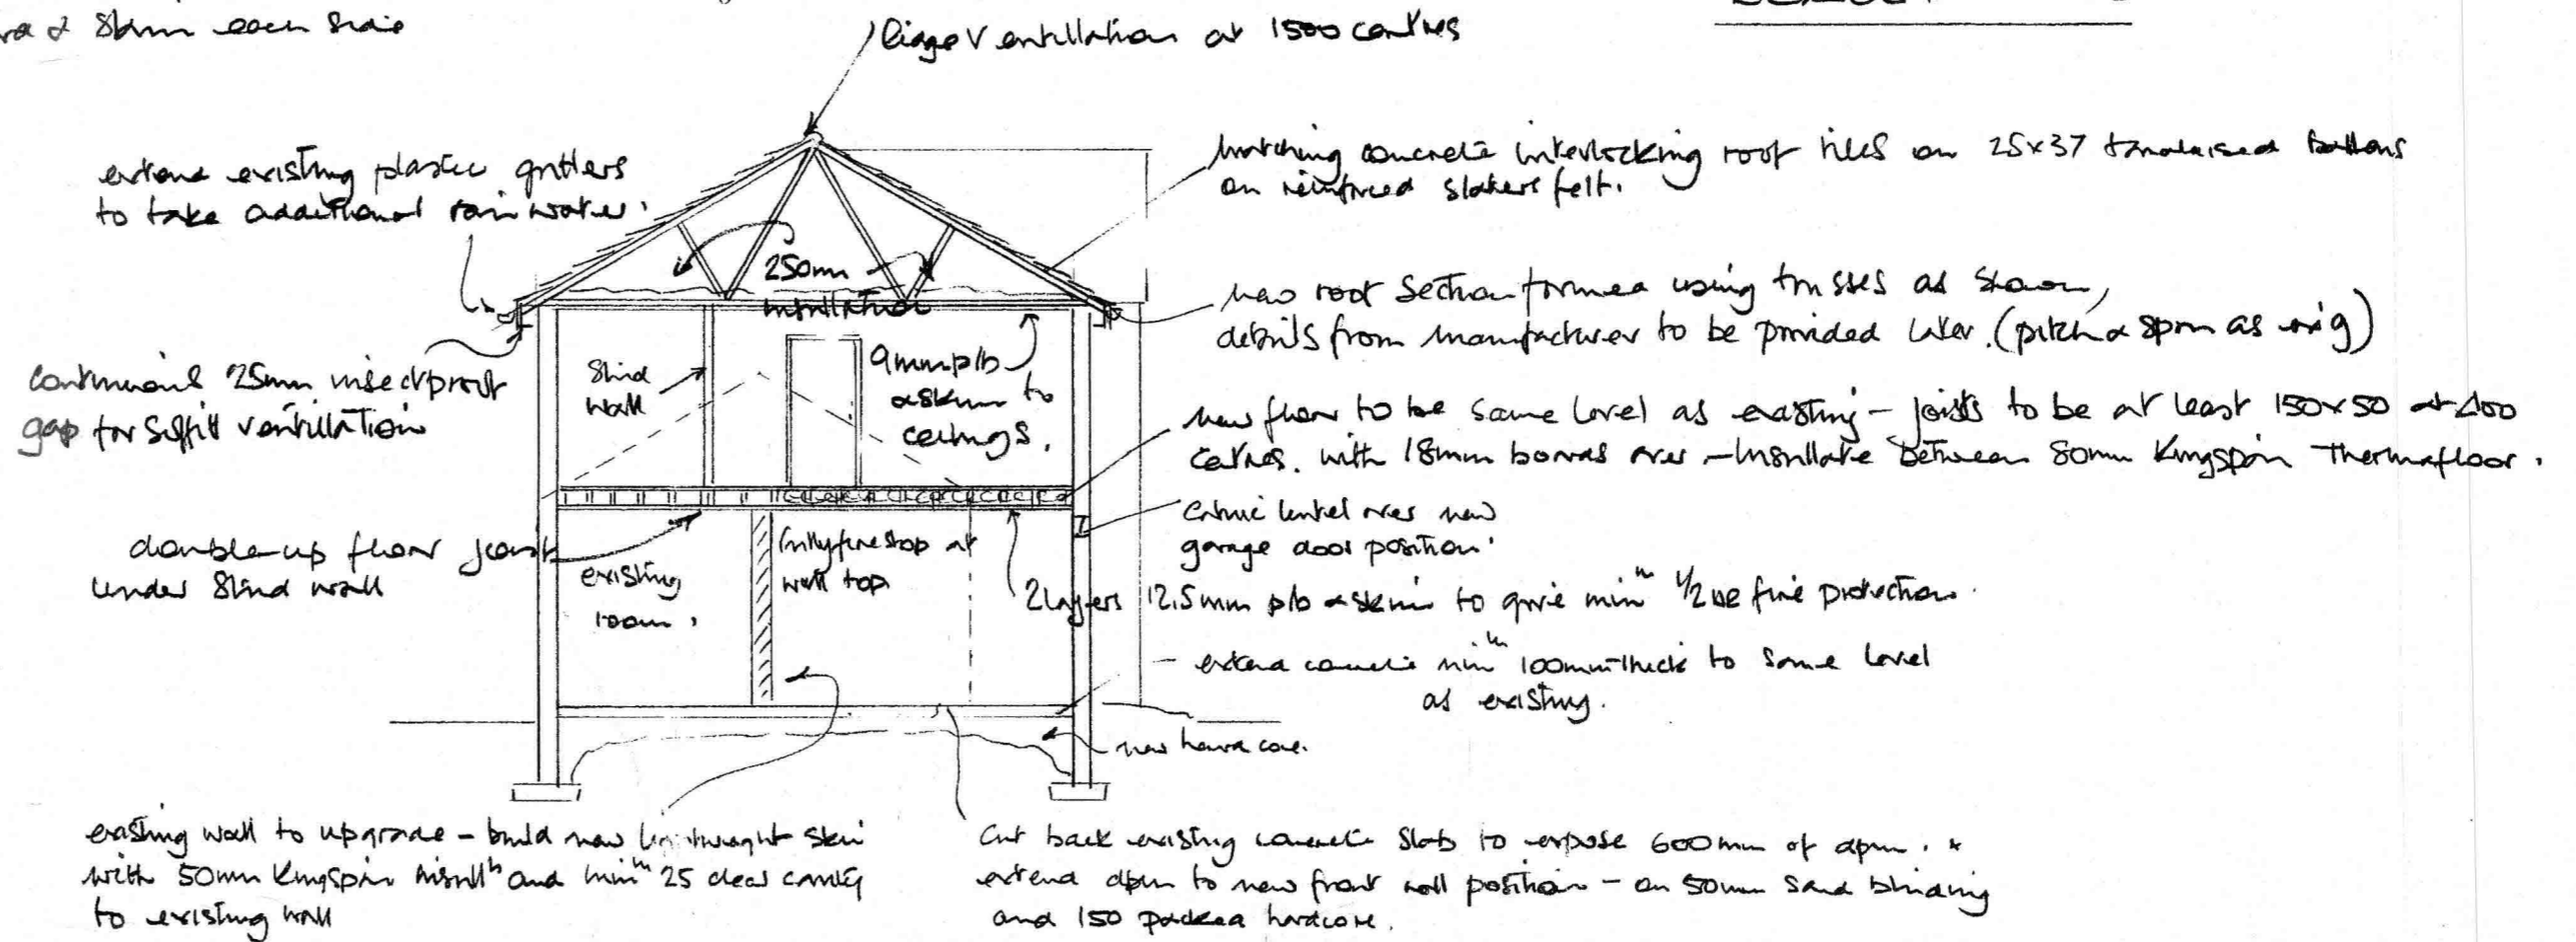 & skim each side
Ridge Ventillation at 1500 centres
extend existing plastic gutters
to take additional rain water.
matching concrete interlocking roof tiles on 25x37 tanalised battens
on reinforced slaters felt.
250mm
insullation
new roof section formed using trusses as shown,
details from manufacturer to be provided later. (pitch & span as orig)
continuous 25mm insectproof
gap for soffit ventillation
Stud
wall
9mm p/b
& skim to
ceilings.
new floor to be same level as existing - joists to be at least 150x50 at 400
centres. with 18mm boards over - Insullate between 80mm Kingspan Thermafloor.
Catnic lintel over new
garage door position.
double-up floor joist
under stud wall
existing
room.
fully fire stop at
wall top
2 layers 12.5mm p/b & skim to give minᵐ 1/2 hr fire protection.
extend concrete minᵐ 100mm thick to same level
as existing.
new hard core.
existing wall to upgrade - build new lightweight skin
with 50mm Kingspan insullⁿ and minᵐ 25 clear cavity
to existing wall
cut back existing concrete slab to expose 600mm of dpm. &
extend dpm to new front wall position - on 50mm sand blinding
and 150 packed hardcore.